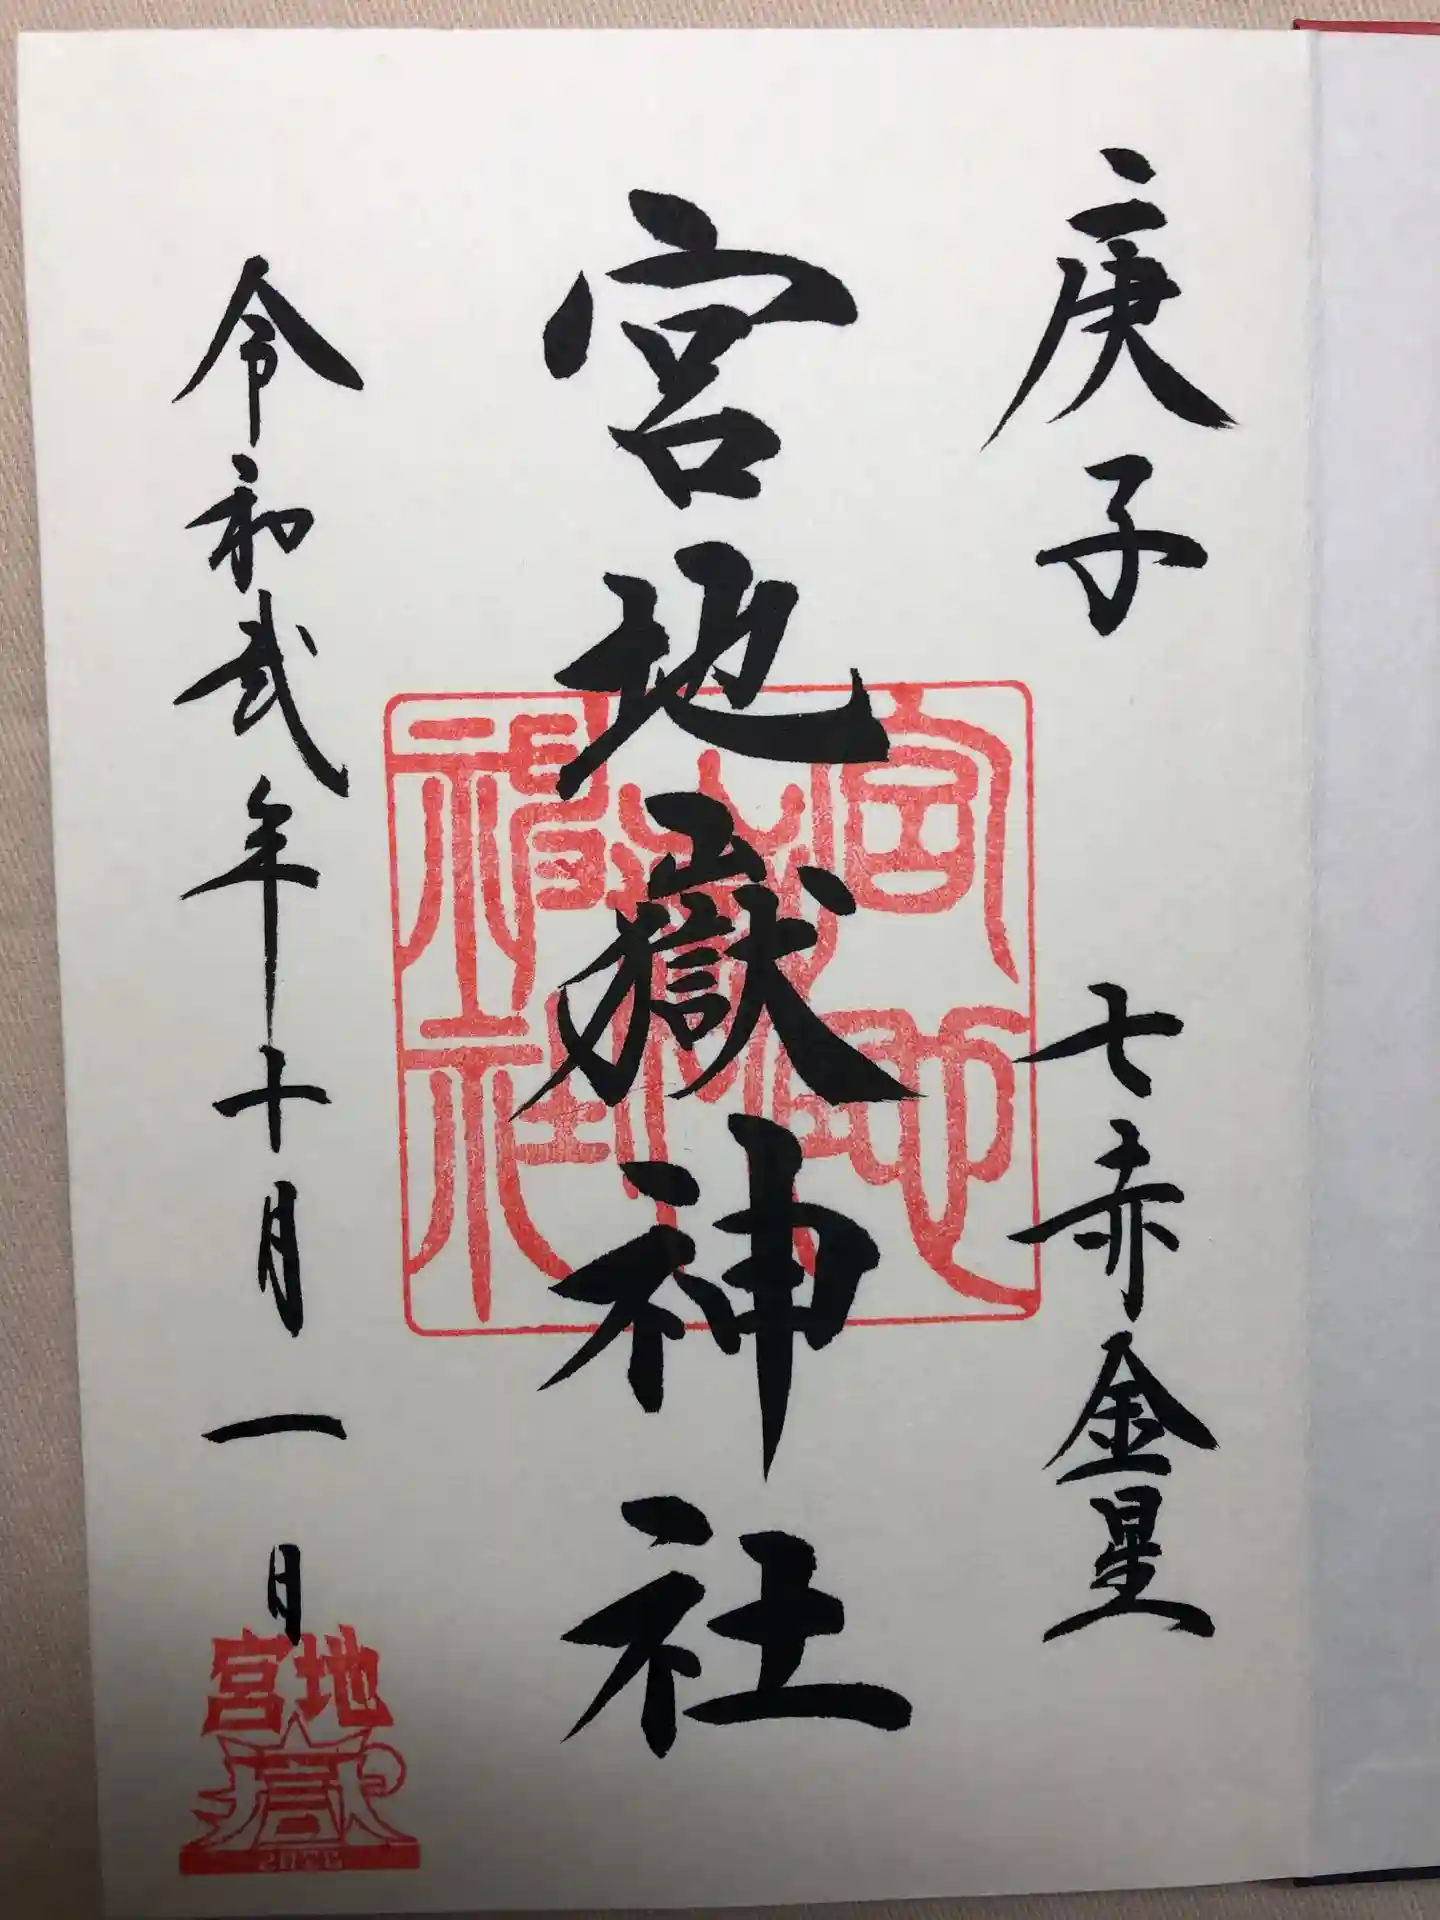 庚子 七赤金星
宮地嶽神社
令和弐年十月一日
宮地嶽神社
宮地
嶽